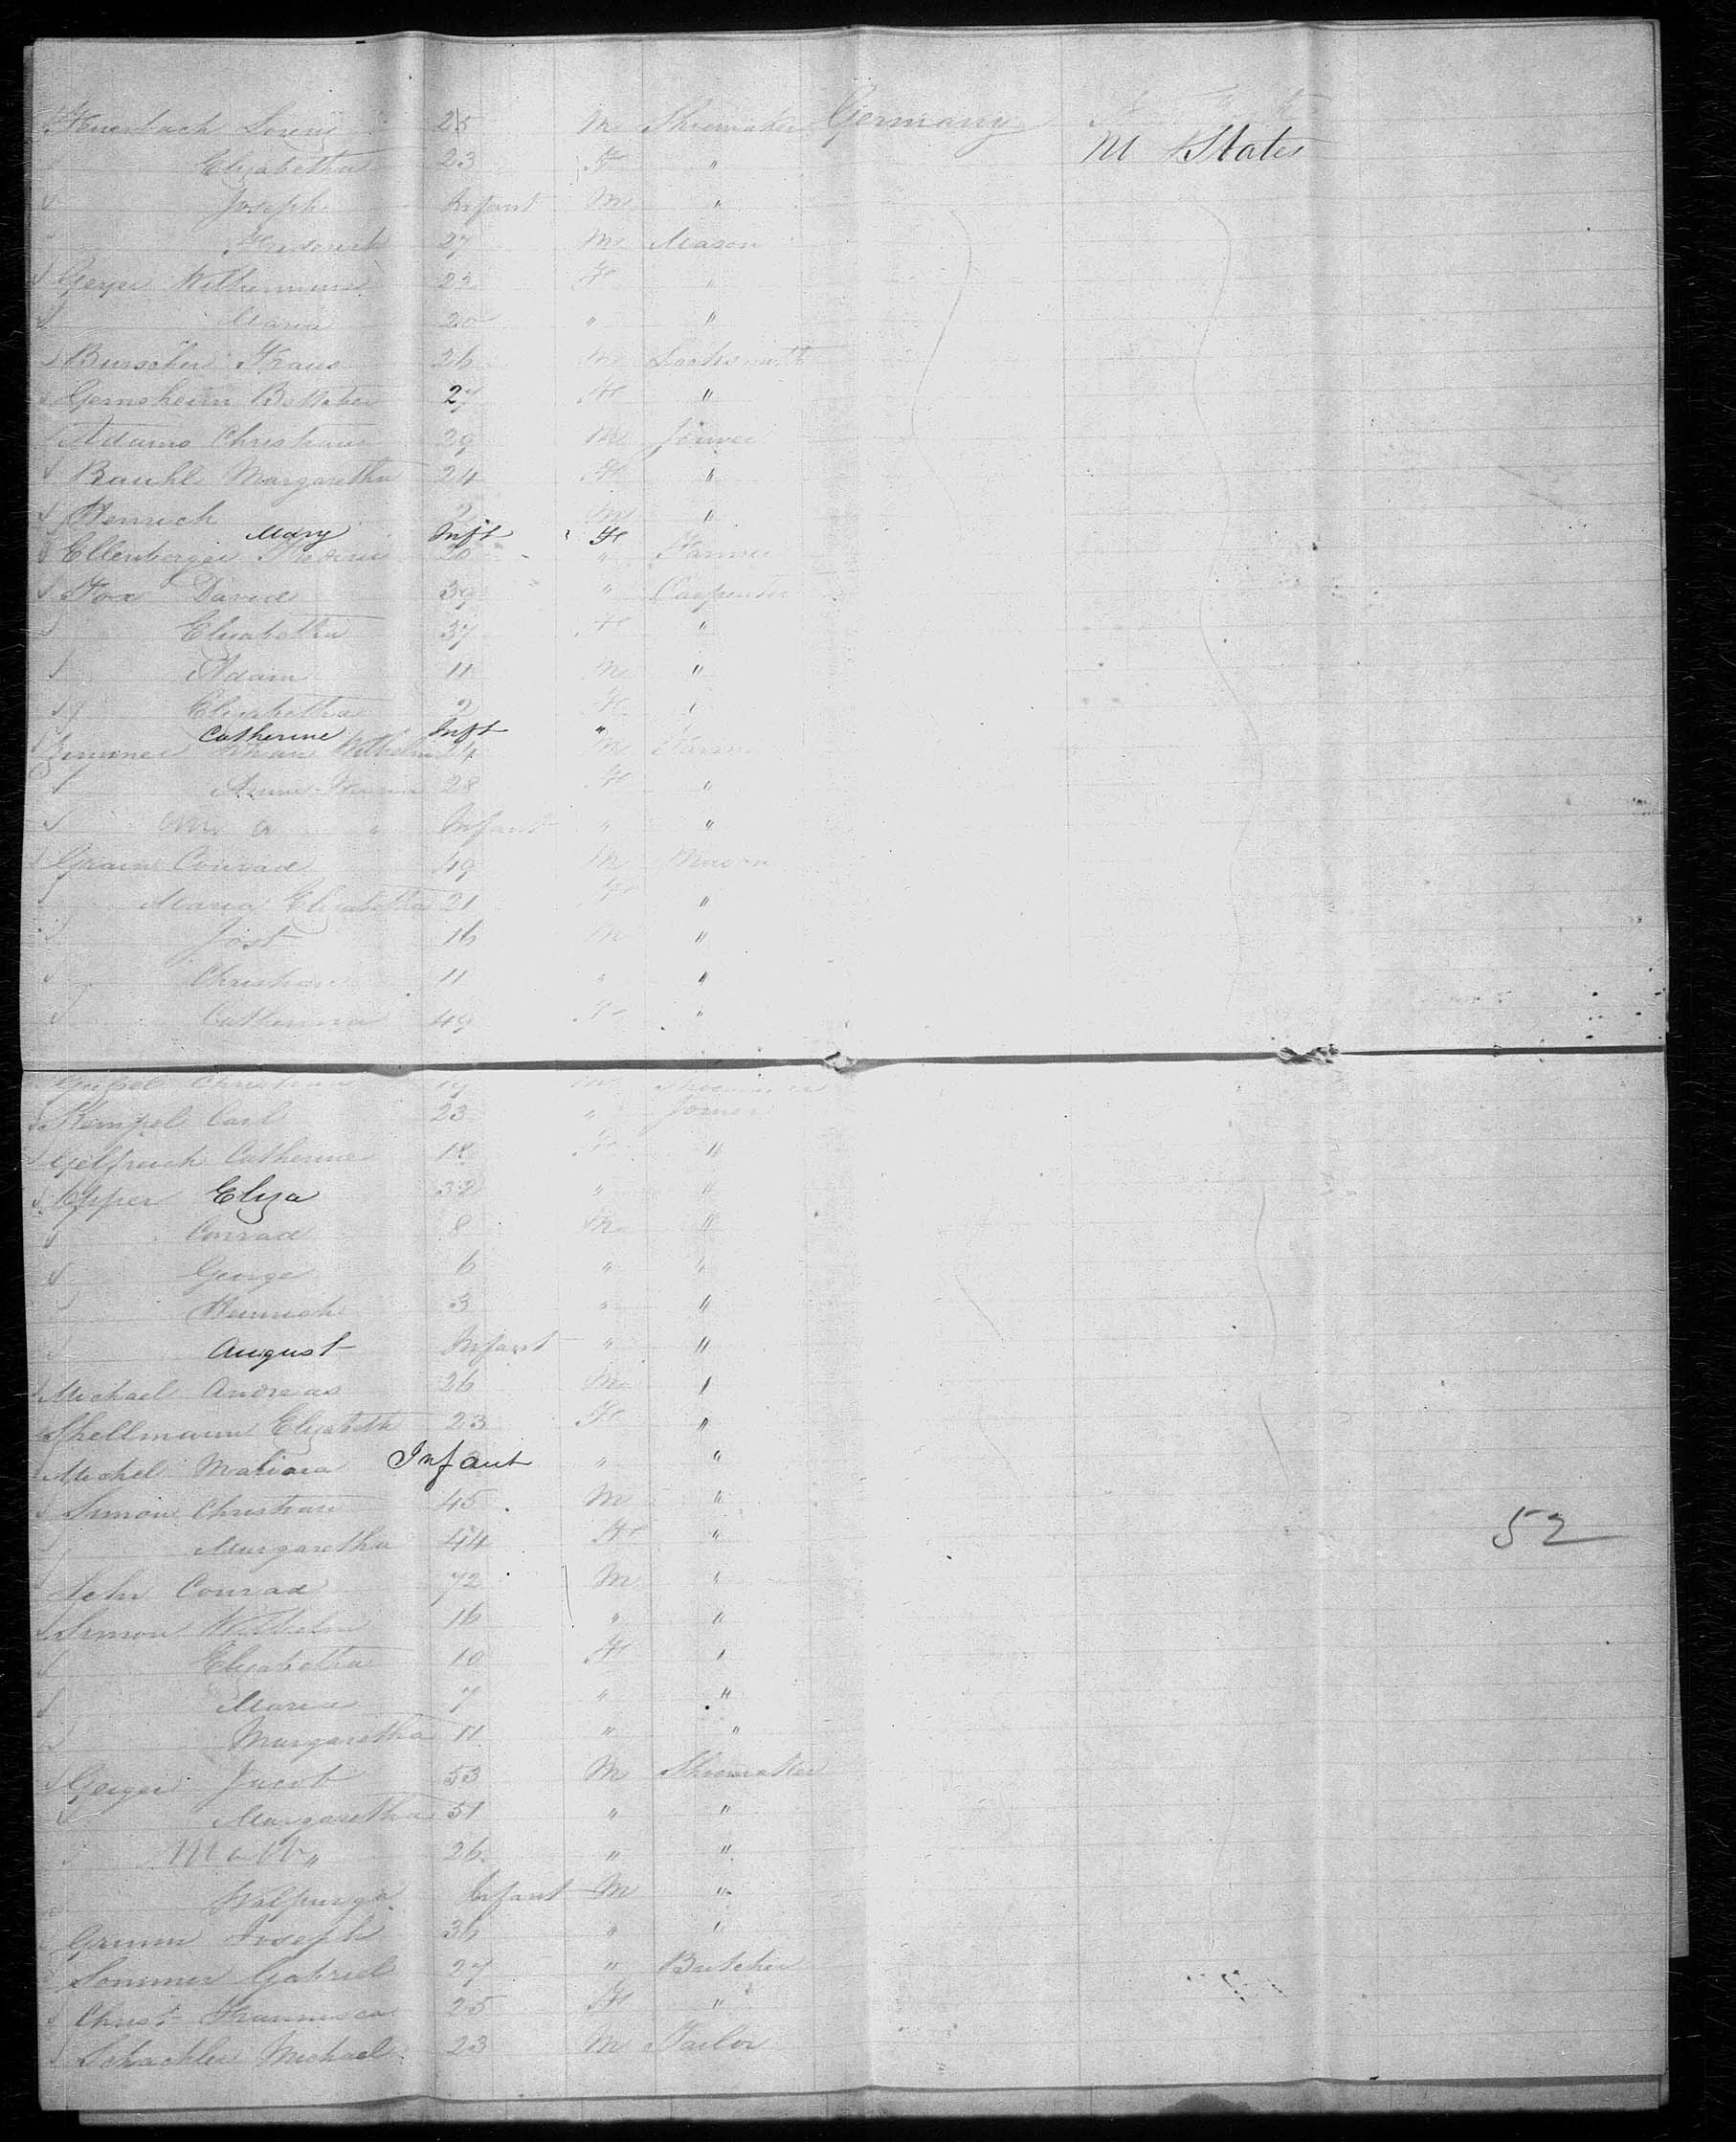 Feuerbach Lorenz 25 M Shoemaker Germany
U States
Elizabetha 23 F "
Joseph Infant M "
Frederick 27 M Mason
Geyer Wilhelmina 23 F "
Maria 20 " "
Burscher Franz 26 M Locksmith
Gernsheim 27 F "
Adams Christian 29 M Joiner
Bauhl Margaretha 24 F "
Henrich 2 M "
Mary Inft F
Ellenberger 20 " Farmer
Fox David 39 " Carpenter
Elizabetha 37 F "
Adam 11 M "
Elizabetha 2 F "
Catherine Inft "
Johan Wilhelm 24 M Farmer
Anna Maria 28 F "
Infant " "
Conrad 49 M Mason
Maria Elizabetha 21 F "
Jost 16 M "
Christian 11 " "
Catherina 49 F "
Christian 19 M Shoemaker
Kempel Carl 23 " Joiner
Gelfreich Catherine 18 F "
Epper Eliza 32 " "
Conrad 8 M "
George 6 " "
Heinrich 3 " "
August Infant " "
Michael Andreas 26 M "
Shellmann Elizabeth 23 F "
Michel Mariana Infant " "
Simon Christian 45 M "
Margaretha 44 F "
52
Conrad 72 M "
Simon Wilhelm 16 " "
Elizabetha 10 F "
Maria 7 " "
Margaretha 11 " "
Geiger Jacob 53 M Shoemaker
Margaretha 51 " "
26 " "
Walpurga Infant M "
Grimm Joseph 36 " "
Sommer Gabriel 27 " Butcher
Christ Franzisca 25 F "
Schachler Michael 23 M Tailor